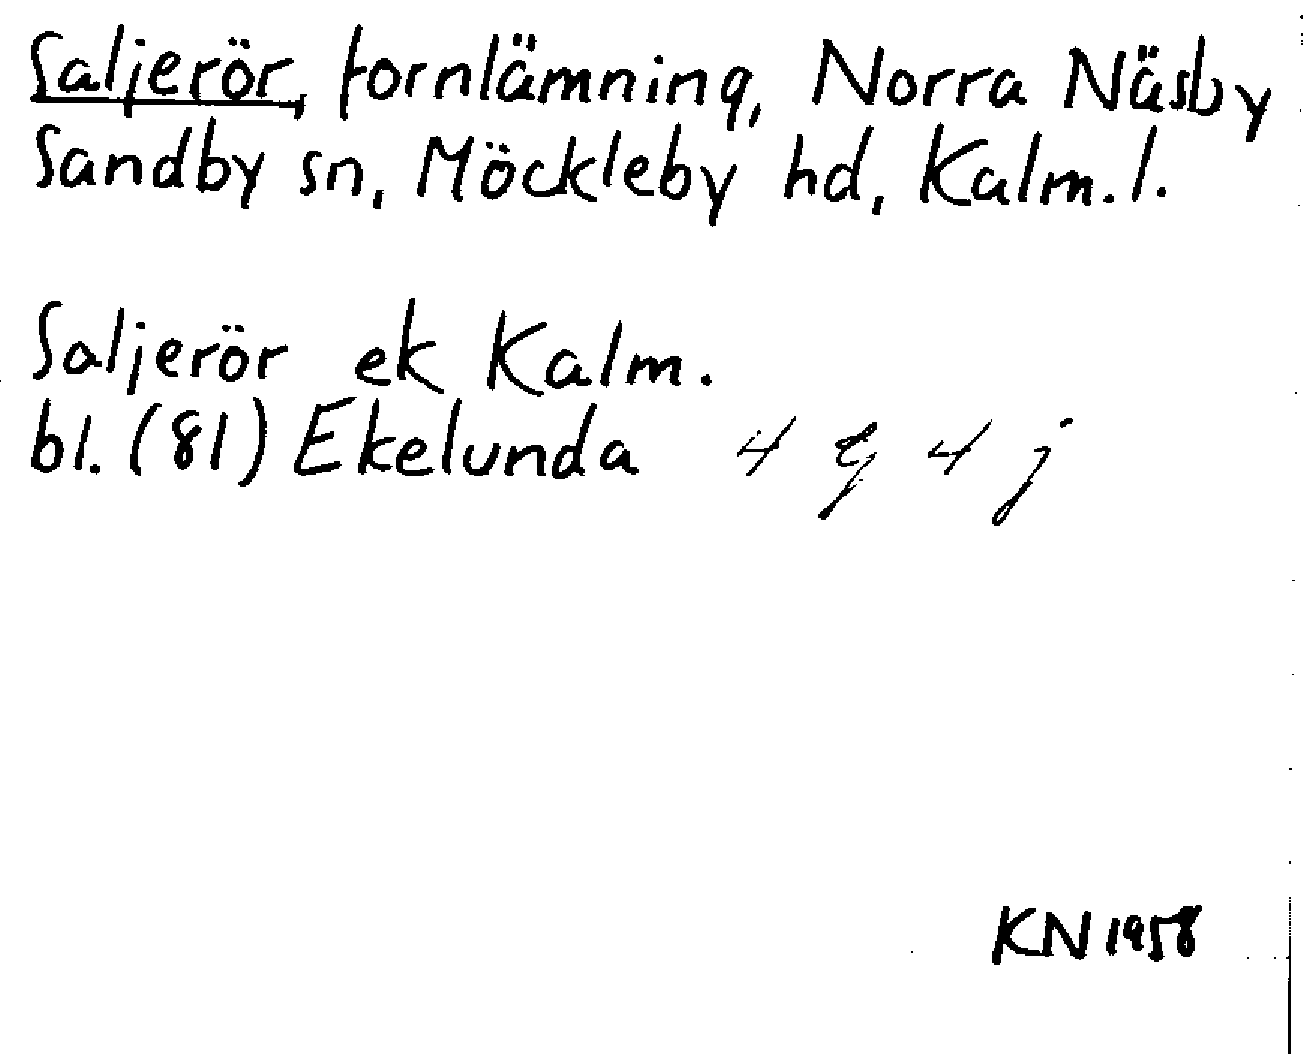 Saljerör, fornlämning, Norra Näsby
Sandby sn, Möckleby hd, Kalm. l.
Saljerör ek Kalm.
bl. (81) Ekelunda 4 g 4 j
KN 1958